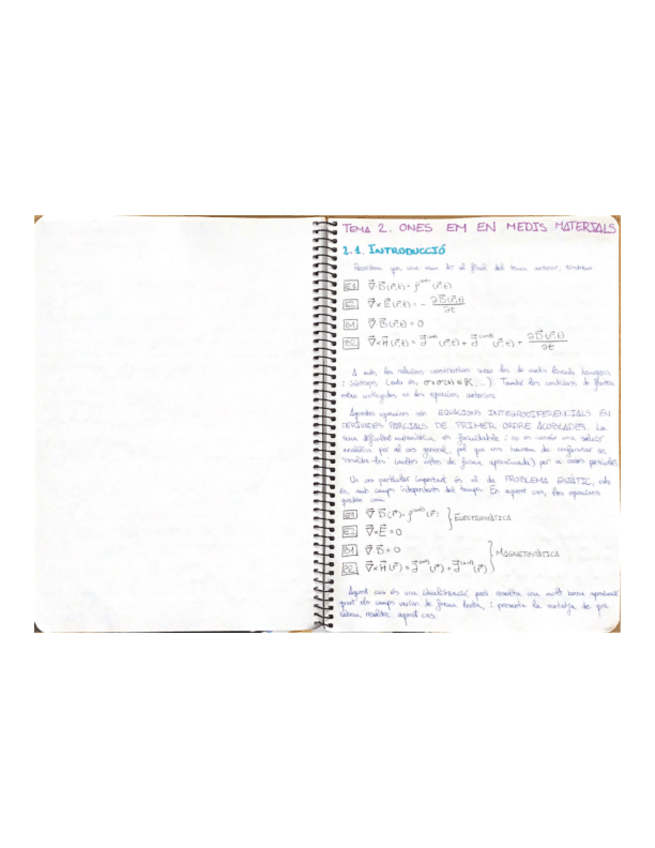 TEMA 2. ONES EM EN MEDIS MATERIALS
2.1. INTRODUCCIÓ
Recordem que, una mica al final del tema anterior,
E1 ∇·D(r,t) = ρ(r,t)
E2 ∇×E(r,t) = - ∂B(r,t)/∂t
B1 ∇·B(r,t) = 0
B2 ∇×H(r,t) = J(r,t) + J(r,t) + ∂D(r,t)/∂t
A més, les relacions constitutives de medis lineals homogenis
i isòtrops (això és, També les condicions de
les equacions anteriors.
Aquestes equacions són EQUACIONS INTEGRODIFERENCIALS EN
DERIVADES PARCIALS DE PRIMER ORDRE ACOBLADES. La
seva dificultat matemàtica és formidable i no es coneix una solució
analítica per al cas general, pel que ens haurem de conformar en
resoldre-les (moltes vegades de forma aproximada) per a casos particulars.
Un cas particular important és el de PROBLEMA ESTÀTIC, això
és, amb camps independents del temps. En aquest cas, les equacions
queden com
E1 ∇·D(r) = ρ(r) } ELECTROSTÀTICA
E2 ∇×E = 0
B1 ∇·B = 0 } MAGNETOSTÀTICA
B2 ∇×H(r) = J(r) + J(r)
Aquest cas és una idealització però resulta una molt bona aproximació
quan els camps varien de forma lenta, i presenta l'avantatge de que
sabem resoldre aquest cas.